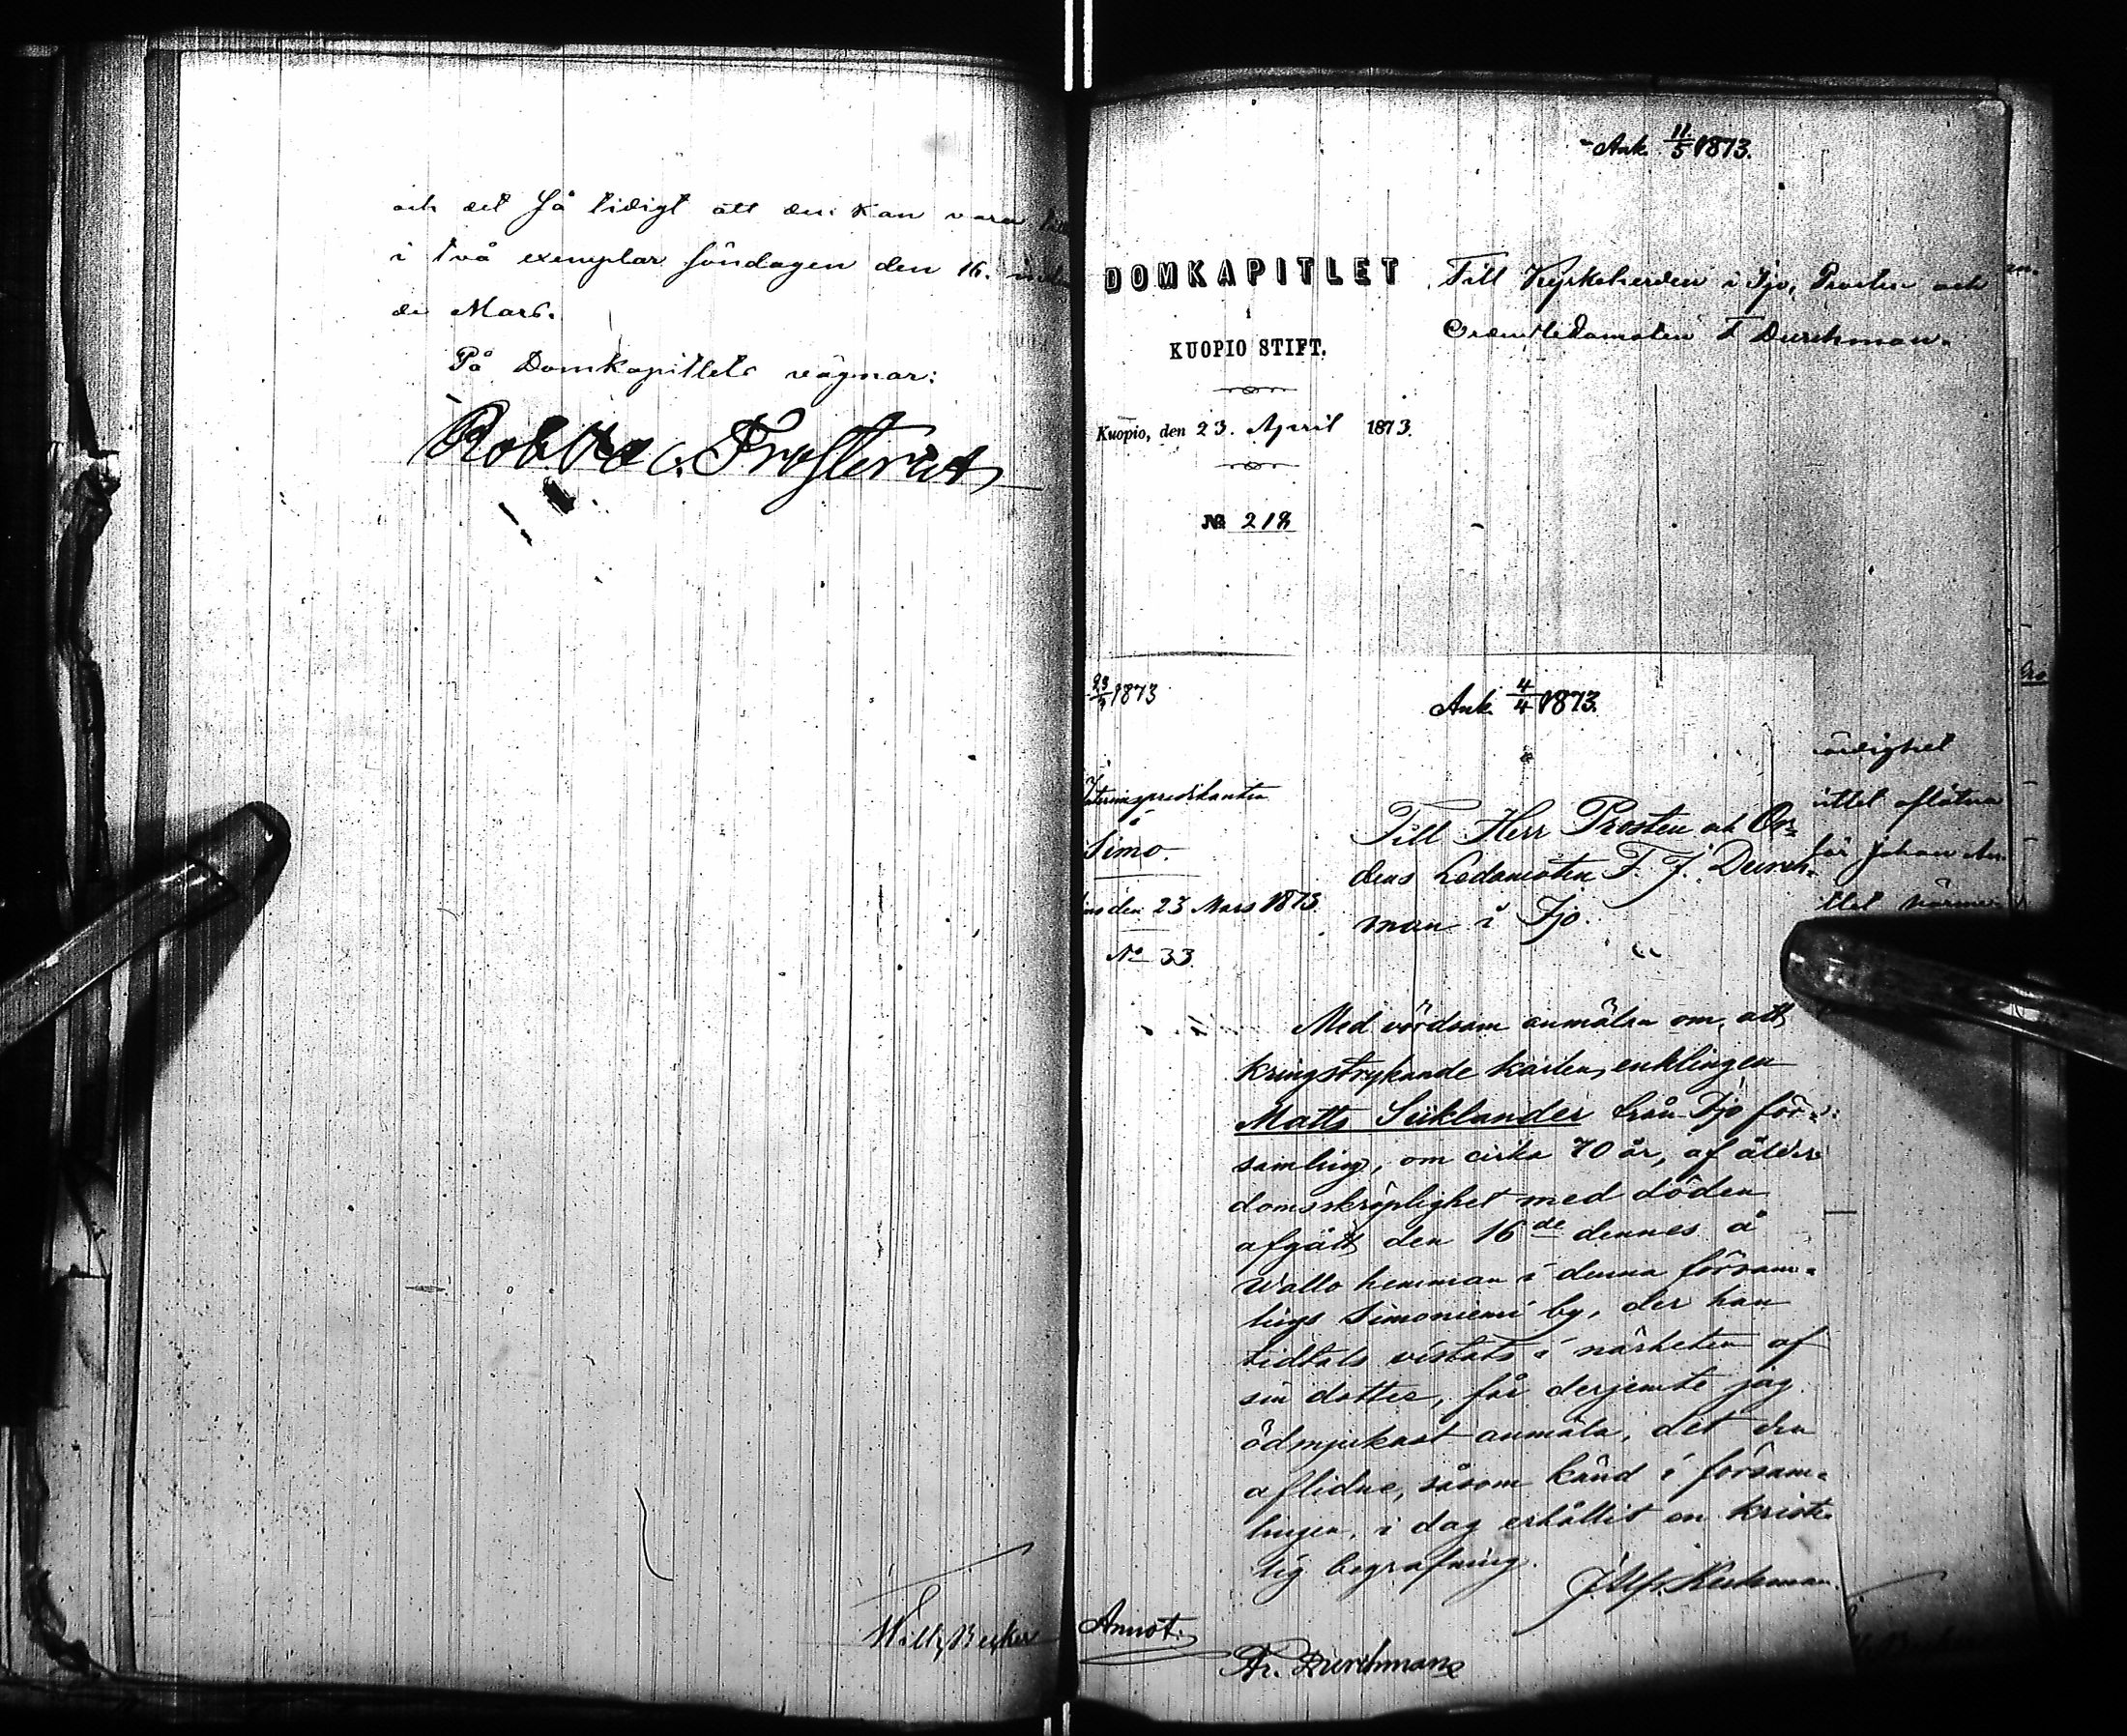 och det så tidigt att den kan vara
i två exemplar söndagen den 16.
de Mars.
På Domkapitlets vägnar:
Rob Frosterus
Willy Becker
Ank. 11/5 1873.
DOMKAPITLET
i
KUOPIO STIFT.
Kuopio, den 23. April 1873.
№ 218
Till Kyrkoherden i Ijo, Prosten och
Ordensledamoten F Durchman.
23/3 1873
Interimspredikanten
i
Simo.
den 23 Mars 1873.
No 33.
Ank. 4/4 1873.
Till Herr Prosten och Or-
dens Ledamoten F. J. Durch-
man i Ijo.
Med vördsam anmälan om, att
kringstrykande karlen, enklingen
Matts Siiklander från Ijo för-
samling, om cirka 70 år, af ålder-
domsskröplighet med döden
afgått den 16de dennes å
Wallo hemman i denna församl-
ings Simoniemi by, der han
tidtals vistats i närheten af
sin dotter, får derjemte jag
ödmjukast anmäla, det den
aflidne, såsom känd i försam-
lingen, i dag erhållit en krist-
lig begrafning.
Annot.
Fr. Durchman
uttet aflåtna
för Johan
ttet närme